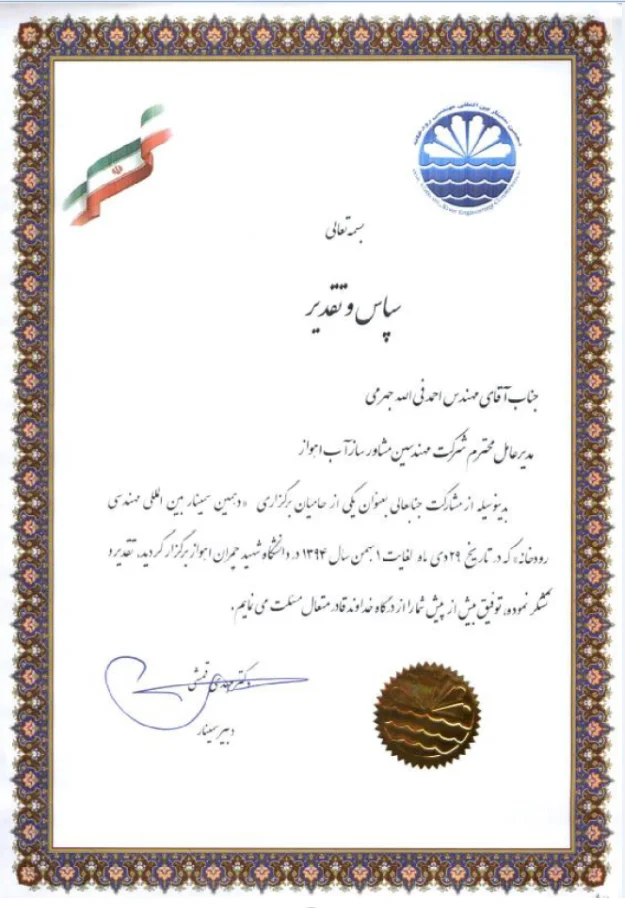 دهمین سمینار بین المللی مهندسی رودخانه
River Engineering
بسمه تعالی
سپاس و تقدیر
جناب آقای مهندس احمد فی الله جهرمی
مدیرعامل محترم شرکت مهندسین مشاور سازآب اهواز
بدینوسیله از مشارکت جنابعالی بعنوان یکی از حامیان برگزاری «دهمین سمینار بین المللی مهندسی
رودخانه» که در تاریخ ۲۹ دی ماه لغایت ۱ بهمن سال ۱۳۹۴ در دانشگاه شهید چمران اهواز برگزار گردید، تقدیر و
تشکر نموده، توفیق بیش از پیش شما را از درگاه خداوند قادر متعال مسئلت می نمایم.
دکتر مهدی قمشی
دبیر سمینار